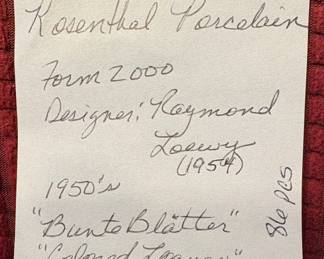 Rosenthal Porcelain
Form 2000
Designer: Raymond
Loewy
(1954)
1950's
"Bunte Blätter"
"Colored Leaves"
86 pcs